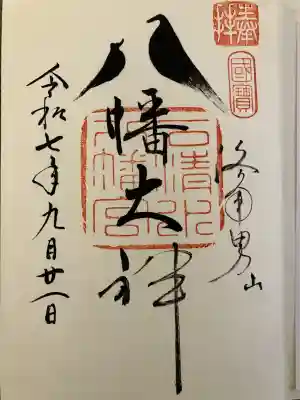 奉拝
國寶
男山
八幡大神
石清水
八幡宮
令和七年九月廿一日